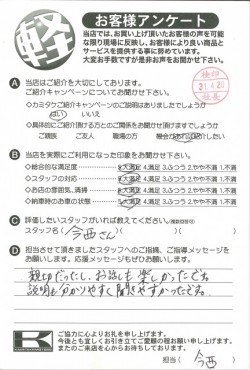 軽
お客様アンケート
当店では、お買い上げ頂いたお客様の声を可能
な限り現場に反映し、お客様により良い商品と
サービスを提供する事に努めています。
大変お手数ですが是非お声をお聞かせ下さい。
検印
社長
A 当店はご紹介を大切にしております。
ご紹介キャンペーンについてお聞かせ下さい。
◇カミタケご紹介キャンペーンのご説明はありましたでしょうか
はい いいえ
◇具体的にご紹介頂ける方とのご関係をお聞かせ頂けますでしょうか
ご親族 ご友人 職場の方
B 当店を実際にご利用になった印象をお聞かせ下さい。
◇総合的な満足度 5大満足 4満足 3ふつう 2やや不満 1不満
◇スタッフの対応 5大満足 4満足 3ふつう 2やや不満 1不満
◇お店の雰囲気、清掃 5大満足 4満足 3ふつう 2やや不満 1不満
◇納車時のお車の状態 5大満足 4満足 3ふつう 2やや不満 1不満
C 評価したいスタッフがいれば教えてください。
スタッフ名( 今西さん )
D 担当させて頂きましたスタッフへのご指摘、ご指導メッセージを
お願いします。応援メッセージもぜひお願いします。
親切だったし、お話も楽しかったです。
説明も分かりやすく聞きやすかったです。
K
ご協力に心よりお礼を申し上げます。
今後とも宜しくお引き立てご愛顧の程お願い申し上げます。
またのご来店を心からお待ちしております。
担当( 今西 )